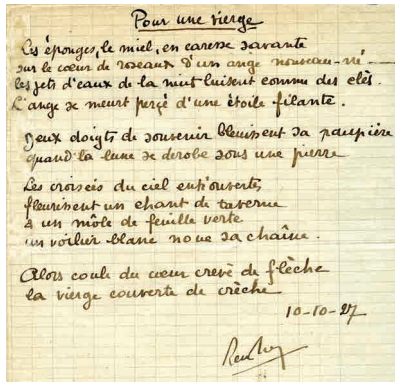 Pour une vierge
Les éponges, le miel, en caresse savante
sur le cœur de roseaux d'un ange nouveau-né
les jets d'eaux de la nuit luisent comme des clés.
L'ange se meurt percé d'une étoile filante.
Deux doigts de souvenir bleuissent sa paupière
quand la lune se derobe sous une pierre
Les croisées du ciel entr'ouvertes
fleurissent un chant de taverne
à un môle de feuille verte
un voilier blanc noue sa chaîne.
Alors coule du cœur crevé de flèche
la vierge couverte de crèche
10-10-27